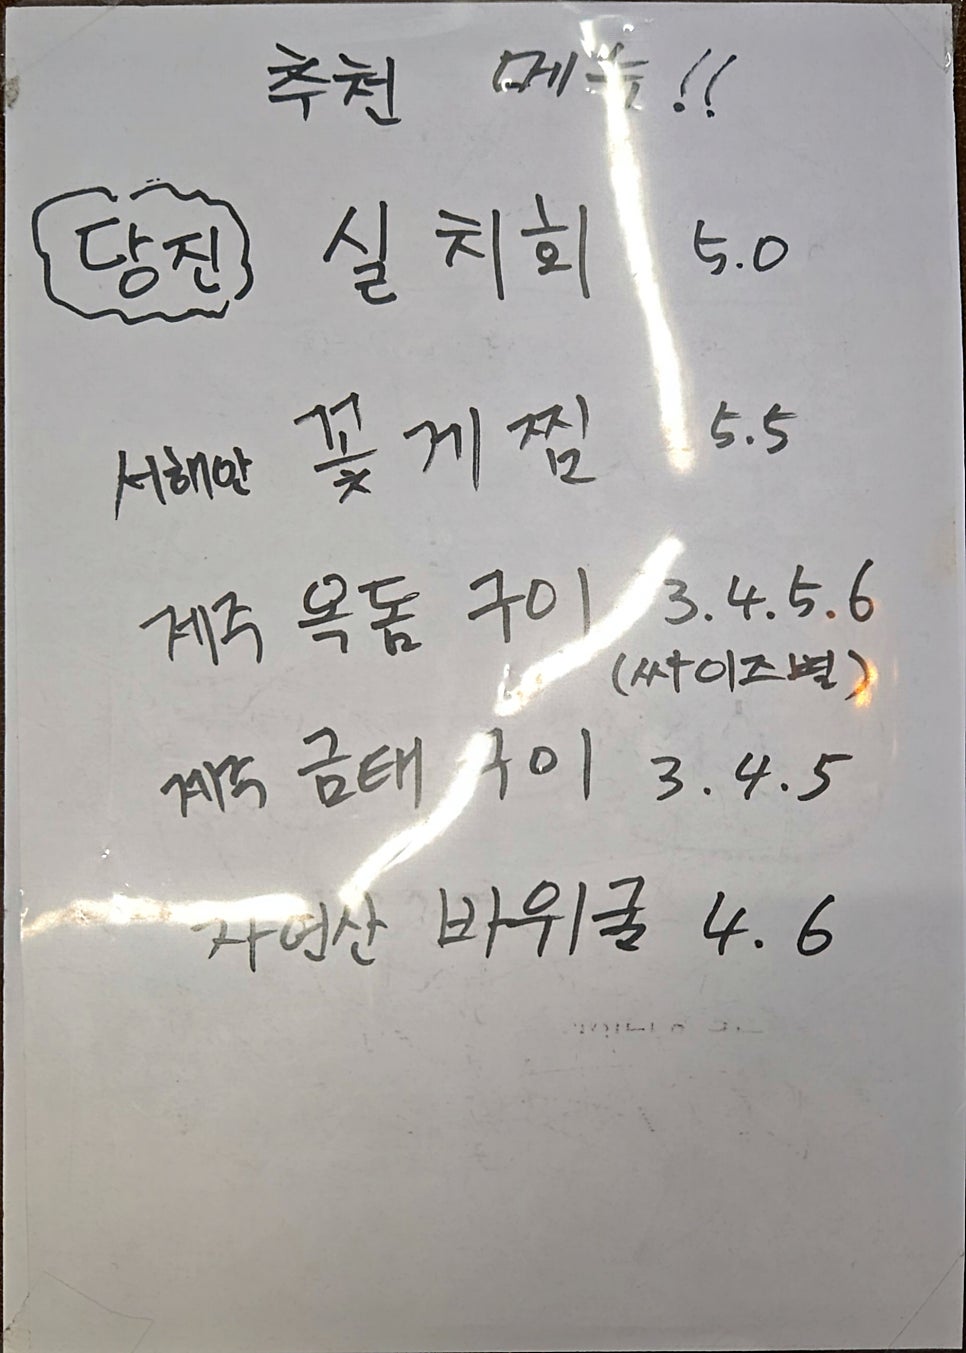 추천 메뉴!!
당진 실치회 5.0
서해안 꽃게찜 5.5
제주 옥돔 구이 3.4.5.6
(싸이즈별)
제주 금태 구이 3.4.5
자연산 바위굴 4.6